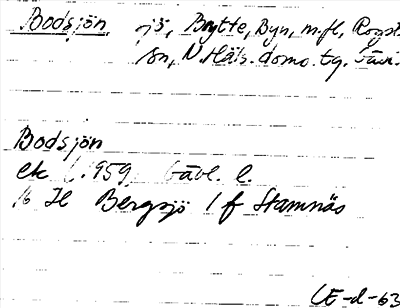 Bodsjön sjö, Brytte, Byn, m.fl., Rogst.
sn, N. Häls. doms. tg. Gävl.
Bodsjön
ek l. 959, Gävl. l.
16 Il Bergsjö 1 f Stamnäs
CE-d-63